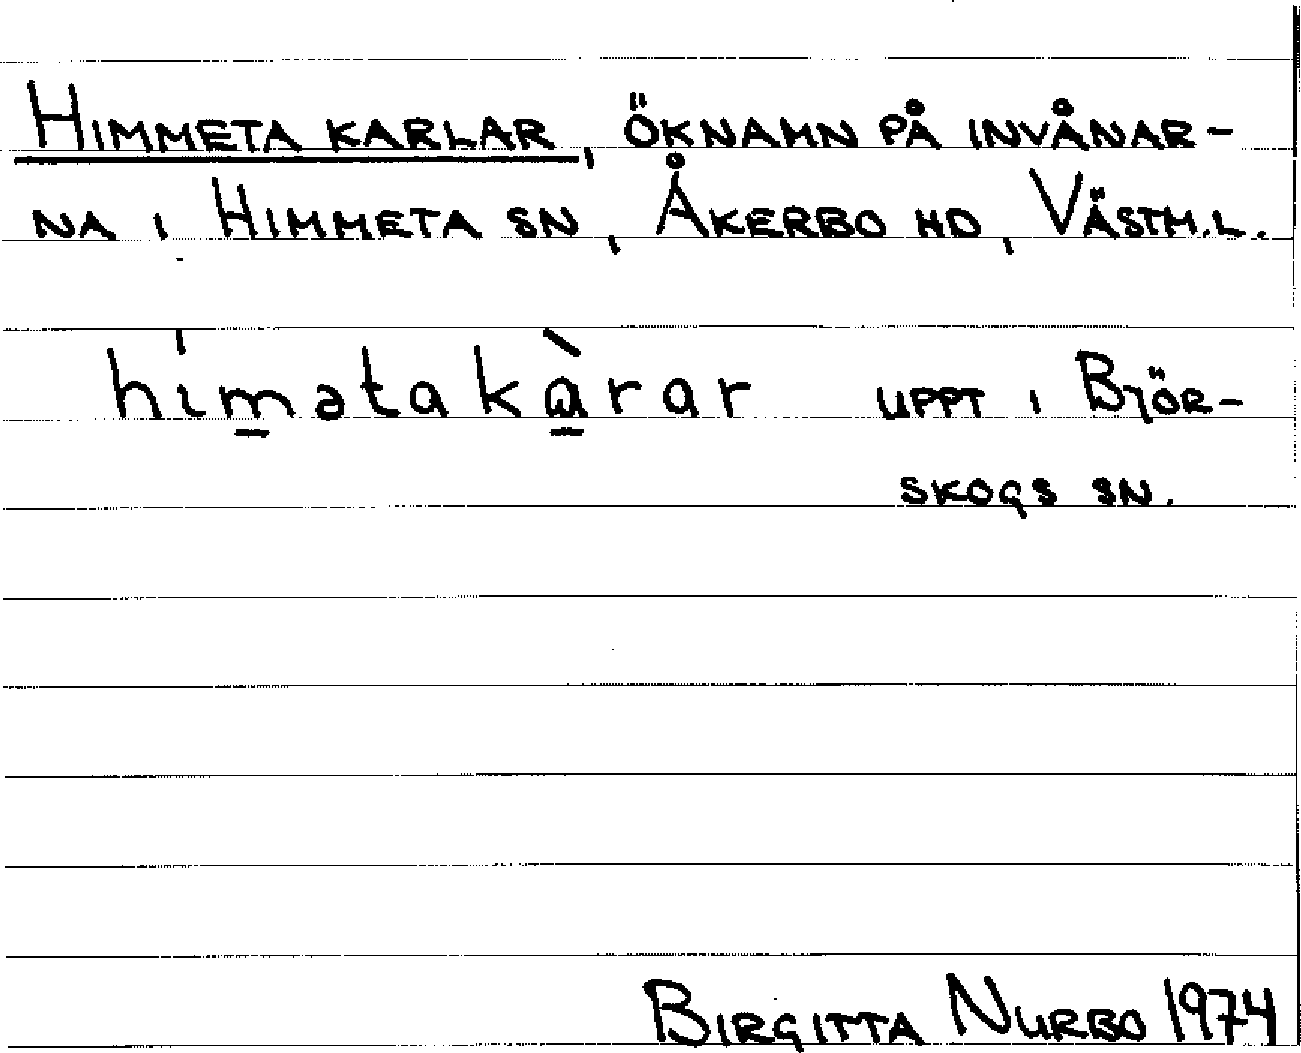 HIMMETA KARLAR, ÖKNAMN PÅ INVÅNAR-
NA I HIMMETA SN, ÅKERBO HD, VÄSTM.L.
hi̍m̲ətakà̲rar UPPT I BJÖR-
SKOGS SN.
BIRGITTA NURBO 1974